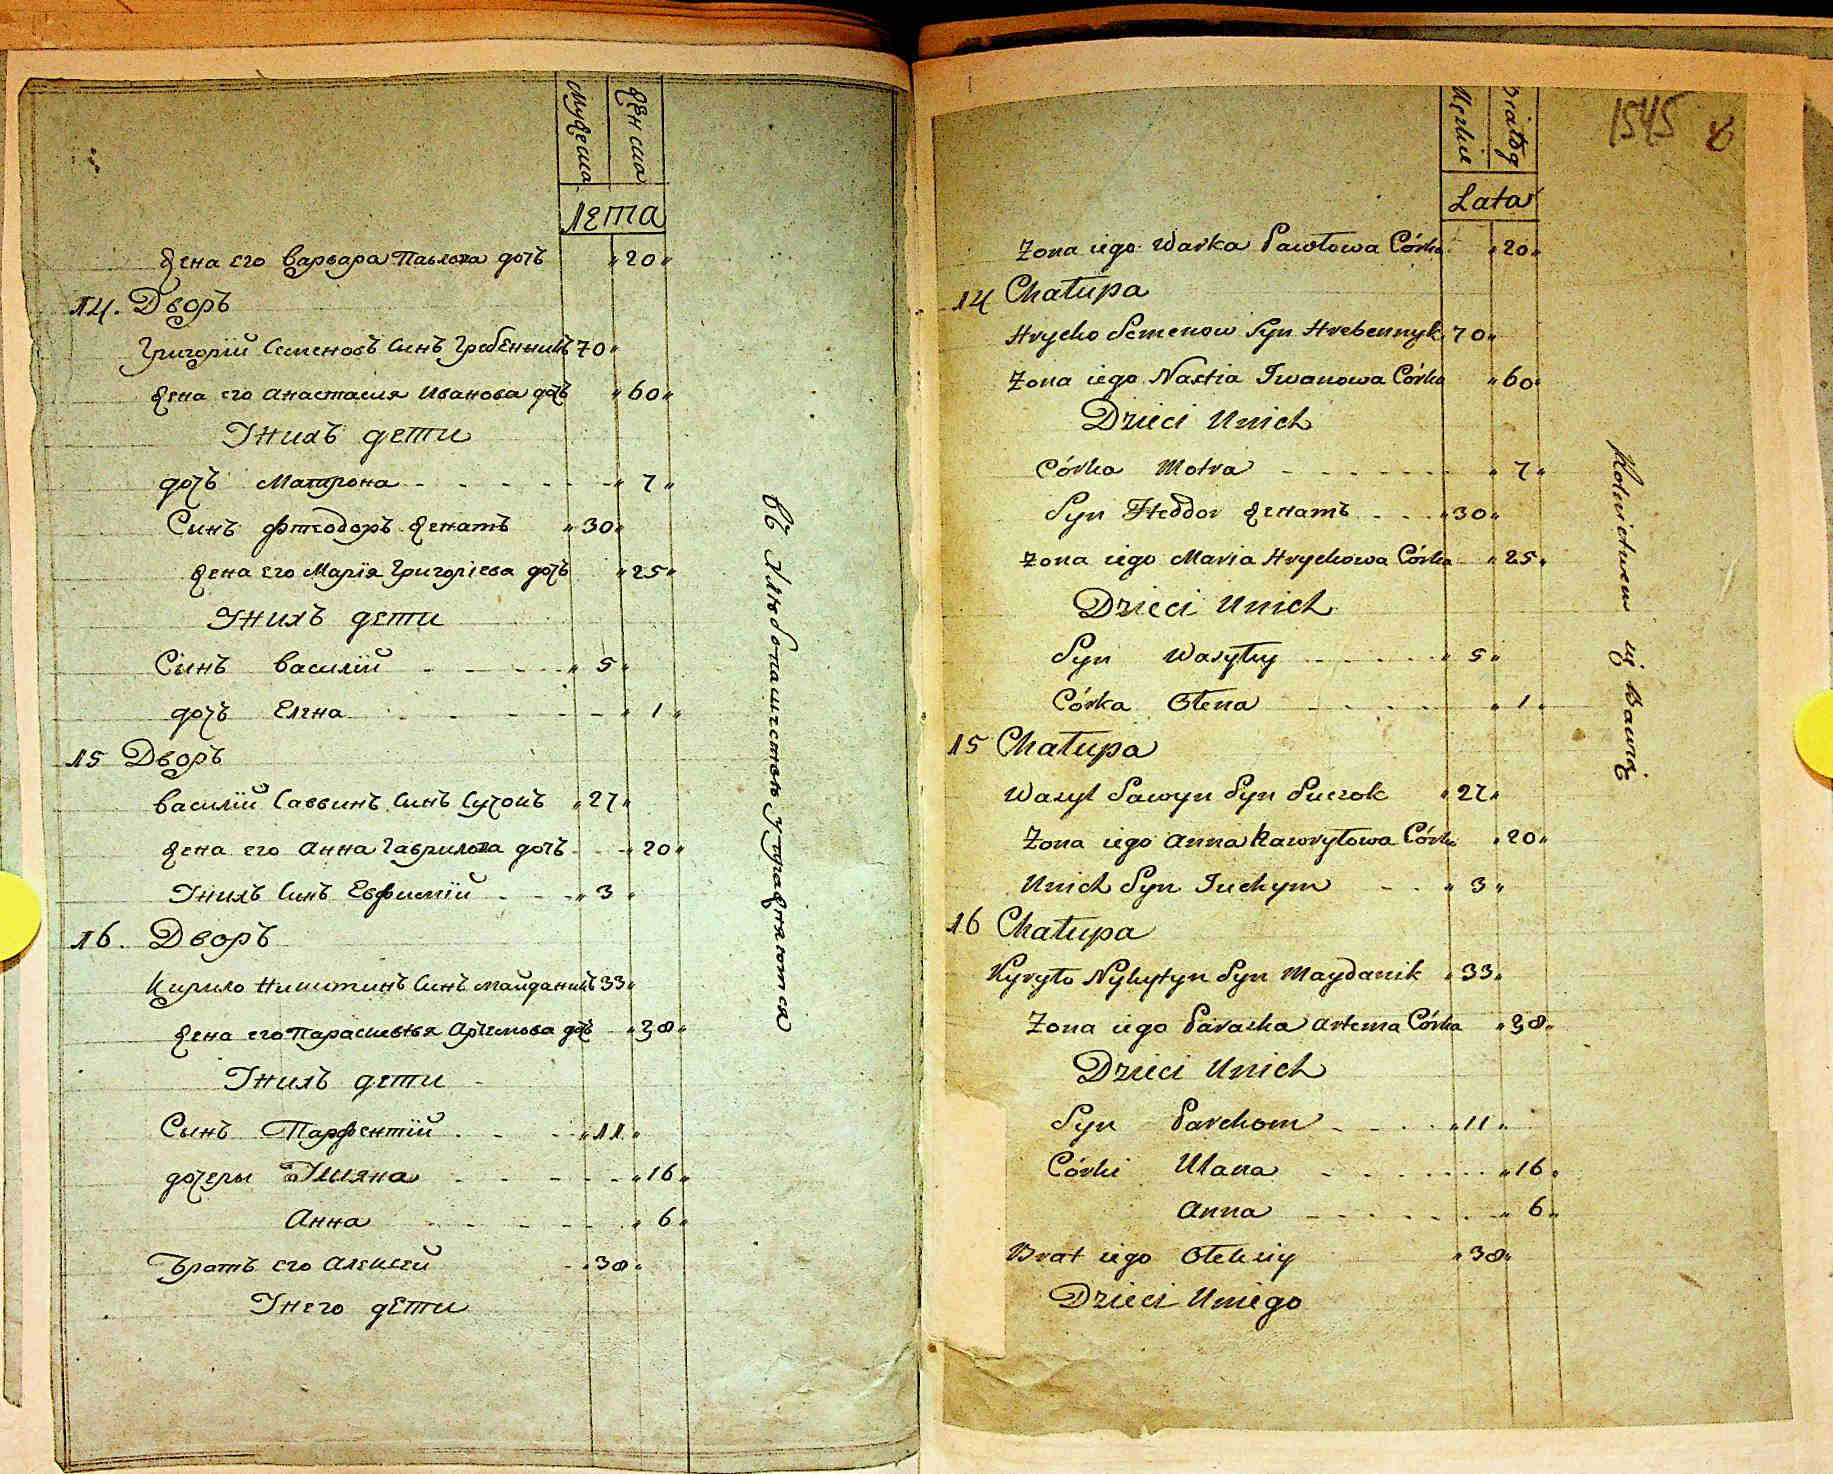 Мужеска
Женска
Лета
Жена его Варвара Павлова дочъ "20"
14. Дворъ
Григорїй Семеновъ Синъ Гребенникъ 70"
Жена его Анастасия Иванова дочъ "60"
Унихъ дети
дочъ Матрона - - - - - - " 7 "
Синъ Фтеодоръ Женатъ "30"
Жена его Марїя Григорїева дочъ "25"
Унихъ дети
Сынъ Василїй - - - - " 5 "
дочъ Елена - - - - - " 1 "
15 Дворъ
Василїй Саввинъ Синъ Сучокъ "27"
Жена его Анна Гаврилова дочъ - - "20"
Унихъ Синъ Евфимїй - - - " 3 "
16. Дворъ
Кирило Никитинъ Синъ Майданикъ 33"
Жена его Параскевѣя Артемова дочъ "38"
Унихъ дети
Сынъ Парфентїй - - - "11"
дочеры Улияна - - - - - "16"
Анна - - - - - " 6 "
Братъ его Алексей - "38"
Унего дети
въ Хлѣбопашествѣ упражняются
1545
Męzkie
Lata
Zona iego Warka Pawłowa Córka "20"
14 Chałupa
Hrycko Semenow Syn Hrebennyk 70"
Zona iego Nastia Iwanowa Córka "60"
Dzieci Unich
Córka Motra - - - - - - " 7 "
Syn Fteddor Женатъ - - - "30"
Zona iego Maria Hryckowa Córka - "25"
Dzieci Unich
Syn Wasyły - - - - - " 5 "
Córka Ołena - - - - - " 1 "
15 Chałupa
Wasyl Sawyn Syn Suczok "27"
Zona iego Anna Hawryłowa Córka "20"
Unich Syn Juchym - - " 3 "
16 Chałupa
Kyryło Nykytyn Syn Maydanik "33"
Zona iego Paraska Artema Córka "38"
Dzieci Unich
Syn Parchom - - - - "11"
Córki Ulana - - - - - "16"
Anna - - - - - - " 6 "
Brat iego Ołeksiy "38"
Dzieci Uniego
się Bawią